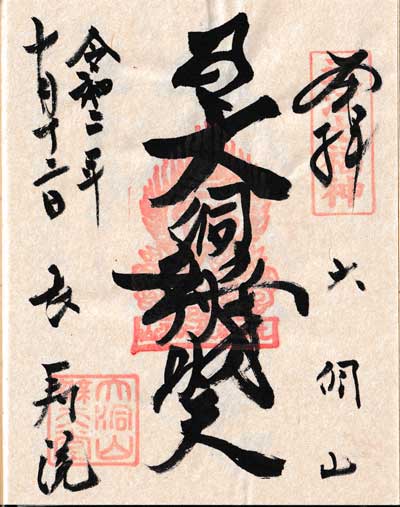 奉拝
大洞山
大洞辨財天
令和二年
十月十二日
長寿院
大洞山